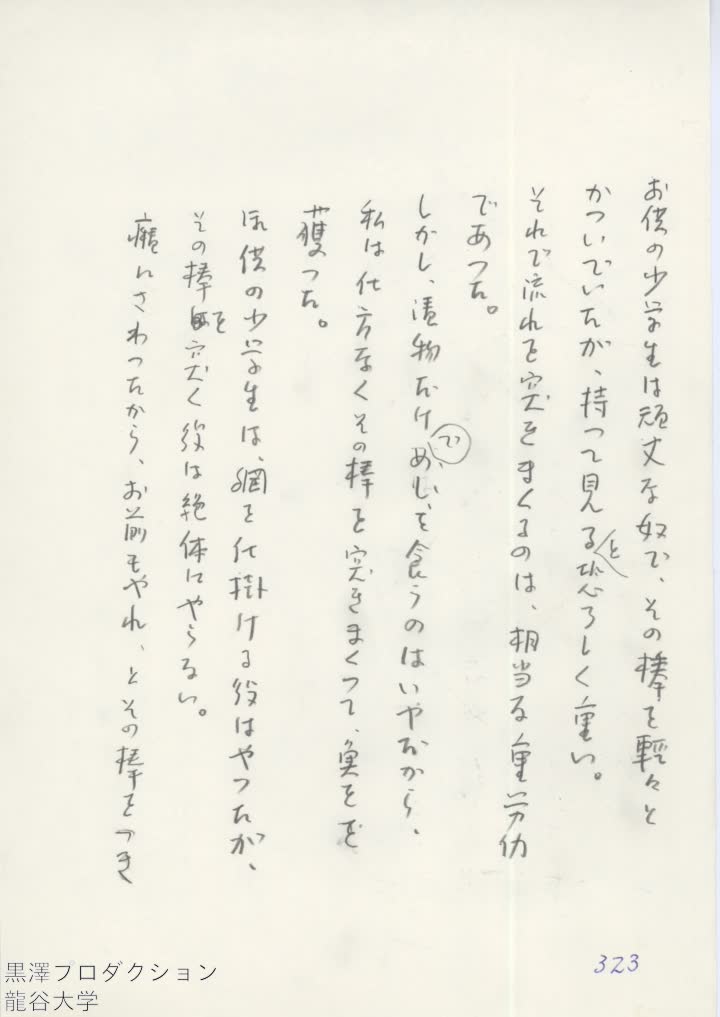 お供の少学生は頑丈な奴で、その棒を軽々と
かついでいたが、持つて見ると恐ろしく重い。
それで流れを突きまくるのは、相当な重労仂
であつた。
しかし、漬物だけでめしを食うのはいやだから、
私は仕方なくその棒を突きまくつて、魚を
獲つた。
お供の少学生は、網を仕掛ける役はやつたが、
その棒を突く役は絶体にやらない。
癪にさわつたから、お前もやれ、とその棒をつき
323
黒澤プロダクション
龍谷大学